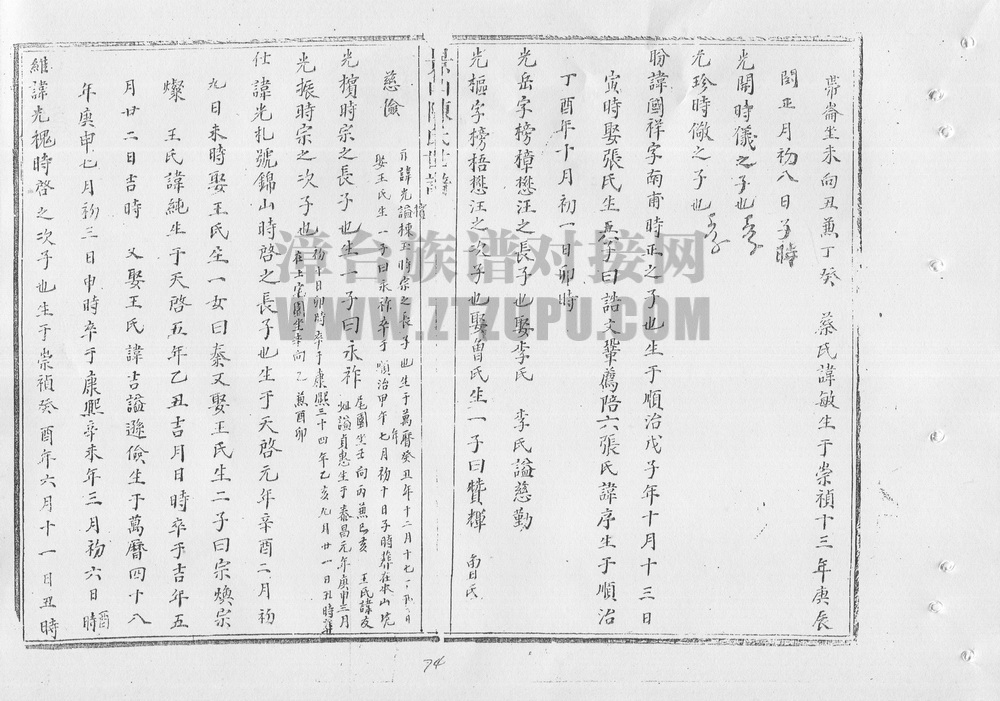 帶崙坐未向丑兼丁癸 蔡氏諱敏生于崇禎十三年庚辰
閏正月初八日子時
光開時儀之子也
光珍時儆之子也
盼諱國祥字南甫時正之子也生于順治戊子年十月十三日
寅時娶張氏生五子曰誥文鞏薦陪六張氏諱序生于順治
丁酉年十月初一日卯時
光岳字榜樟懋汪之長子也娶李氏 李氏謚慈勤
光樞字榜梧懋汪之次子也娶曾氏生一子曰贊輝 曾氏
慈儉
諱光 謚棟玉時宗之長子也生于萬曆癸丑年十二月十七日
娶王氏生一子曰永祿卒于順治甲午年七月初十日子時葬在本山
光擯時宗之長子也生一子曰永祚
尾園坐壬向丙兼巳亥 王氏諱
妣謚貞惠生于泰昌元年庚申三月
光振時宗之次子也
初十日卯時卒于康熙三十四年乙亥九月廿一日丑時葬
在土宅園坐辛向乙兼酉卯
仕諱光札號錦山時啓之長子也生于天啓元年辛酉二月初
九日未時娶王氏生一女曰泰又娶王氏生二子曰宗煥宗
燦 王氏諱純生于天啓五年乙丑吉月日時卒于吉年五
月廿二日吉時 又娶王氏諱吉謚遜儉生于萬曆四十八
年庚申七月初三日申時卒于康熙辛未年三月初六日酉時
維諱光槐時啓之次子也生于崇禎癸酉年六月十一日丑時
74
漳台族谱对接网
WWW.ZTZUPU.COM